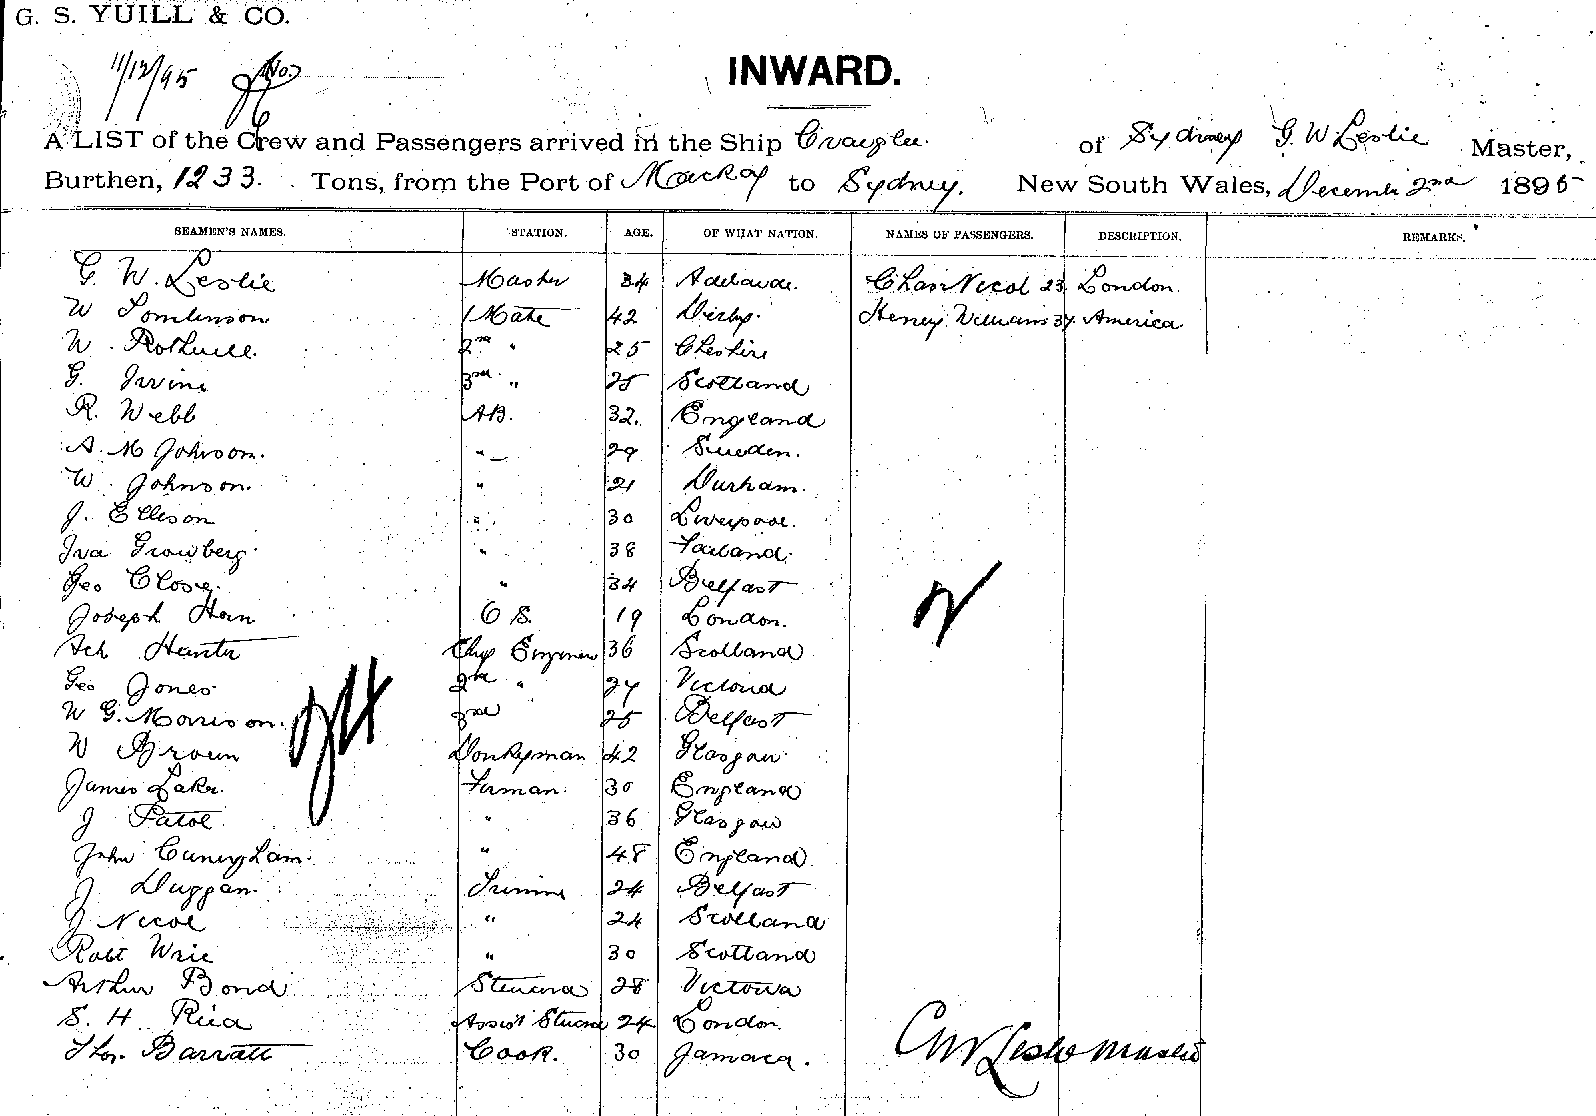 G. S. YUILL & CO.
11/12/95 No.
INWARD.
A LIST of the Crew and Passengers arrived in the Ship of Sydney G. W Leslie Master,
Burthen, 1233. Tons, from the Port of Mackay to Sydney. New South Wales, December 2nd 1895
SEAMEN'S NAMES. STATION. AGE. OF WHAT NATION. NAMES OF PASSENGERS. DESCRIPTION. REMARKS.
G. W. Leslie Master 34 Adelaide. Chas Nicol 23 London.
W Tomlinson Mate 42 Derby. Henry Williams 37 America
W. Rothwell. 2nd " 25 Cheshire
G. Irvine 3rd " 25 Scotland
R. Webb AB. 32. England
A. M Johnson. " 29 Sweden.
W. Johnson. " 21 Durham.
J. Ellison " 30 Liverpool.
Iva " 38
Geo Close. " 34 Belfast
Joseph O S. 19 London.
Hunter Chief Engineer 36 Scotland
Geo Jones 2nd " 27 Victoria
W G. Morrison. 3rd 25 Belfast
W Brown Donkeyman 42 Glasgow
James Laker. Firman 30 England
J " 36 Glasgow
John Cunnyham. " 48 England
J Duggan. Trimmer 24 Belfast
J Nicol " 24 Scotland
Robt " 30 Scotland
Arthur Bond Steward 28 Victoria
S. H. Assist Steward 24 London.
Thos. Barratt Cook. 30 Jamaca.
G W Leslie Master